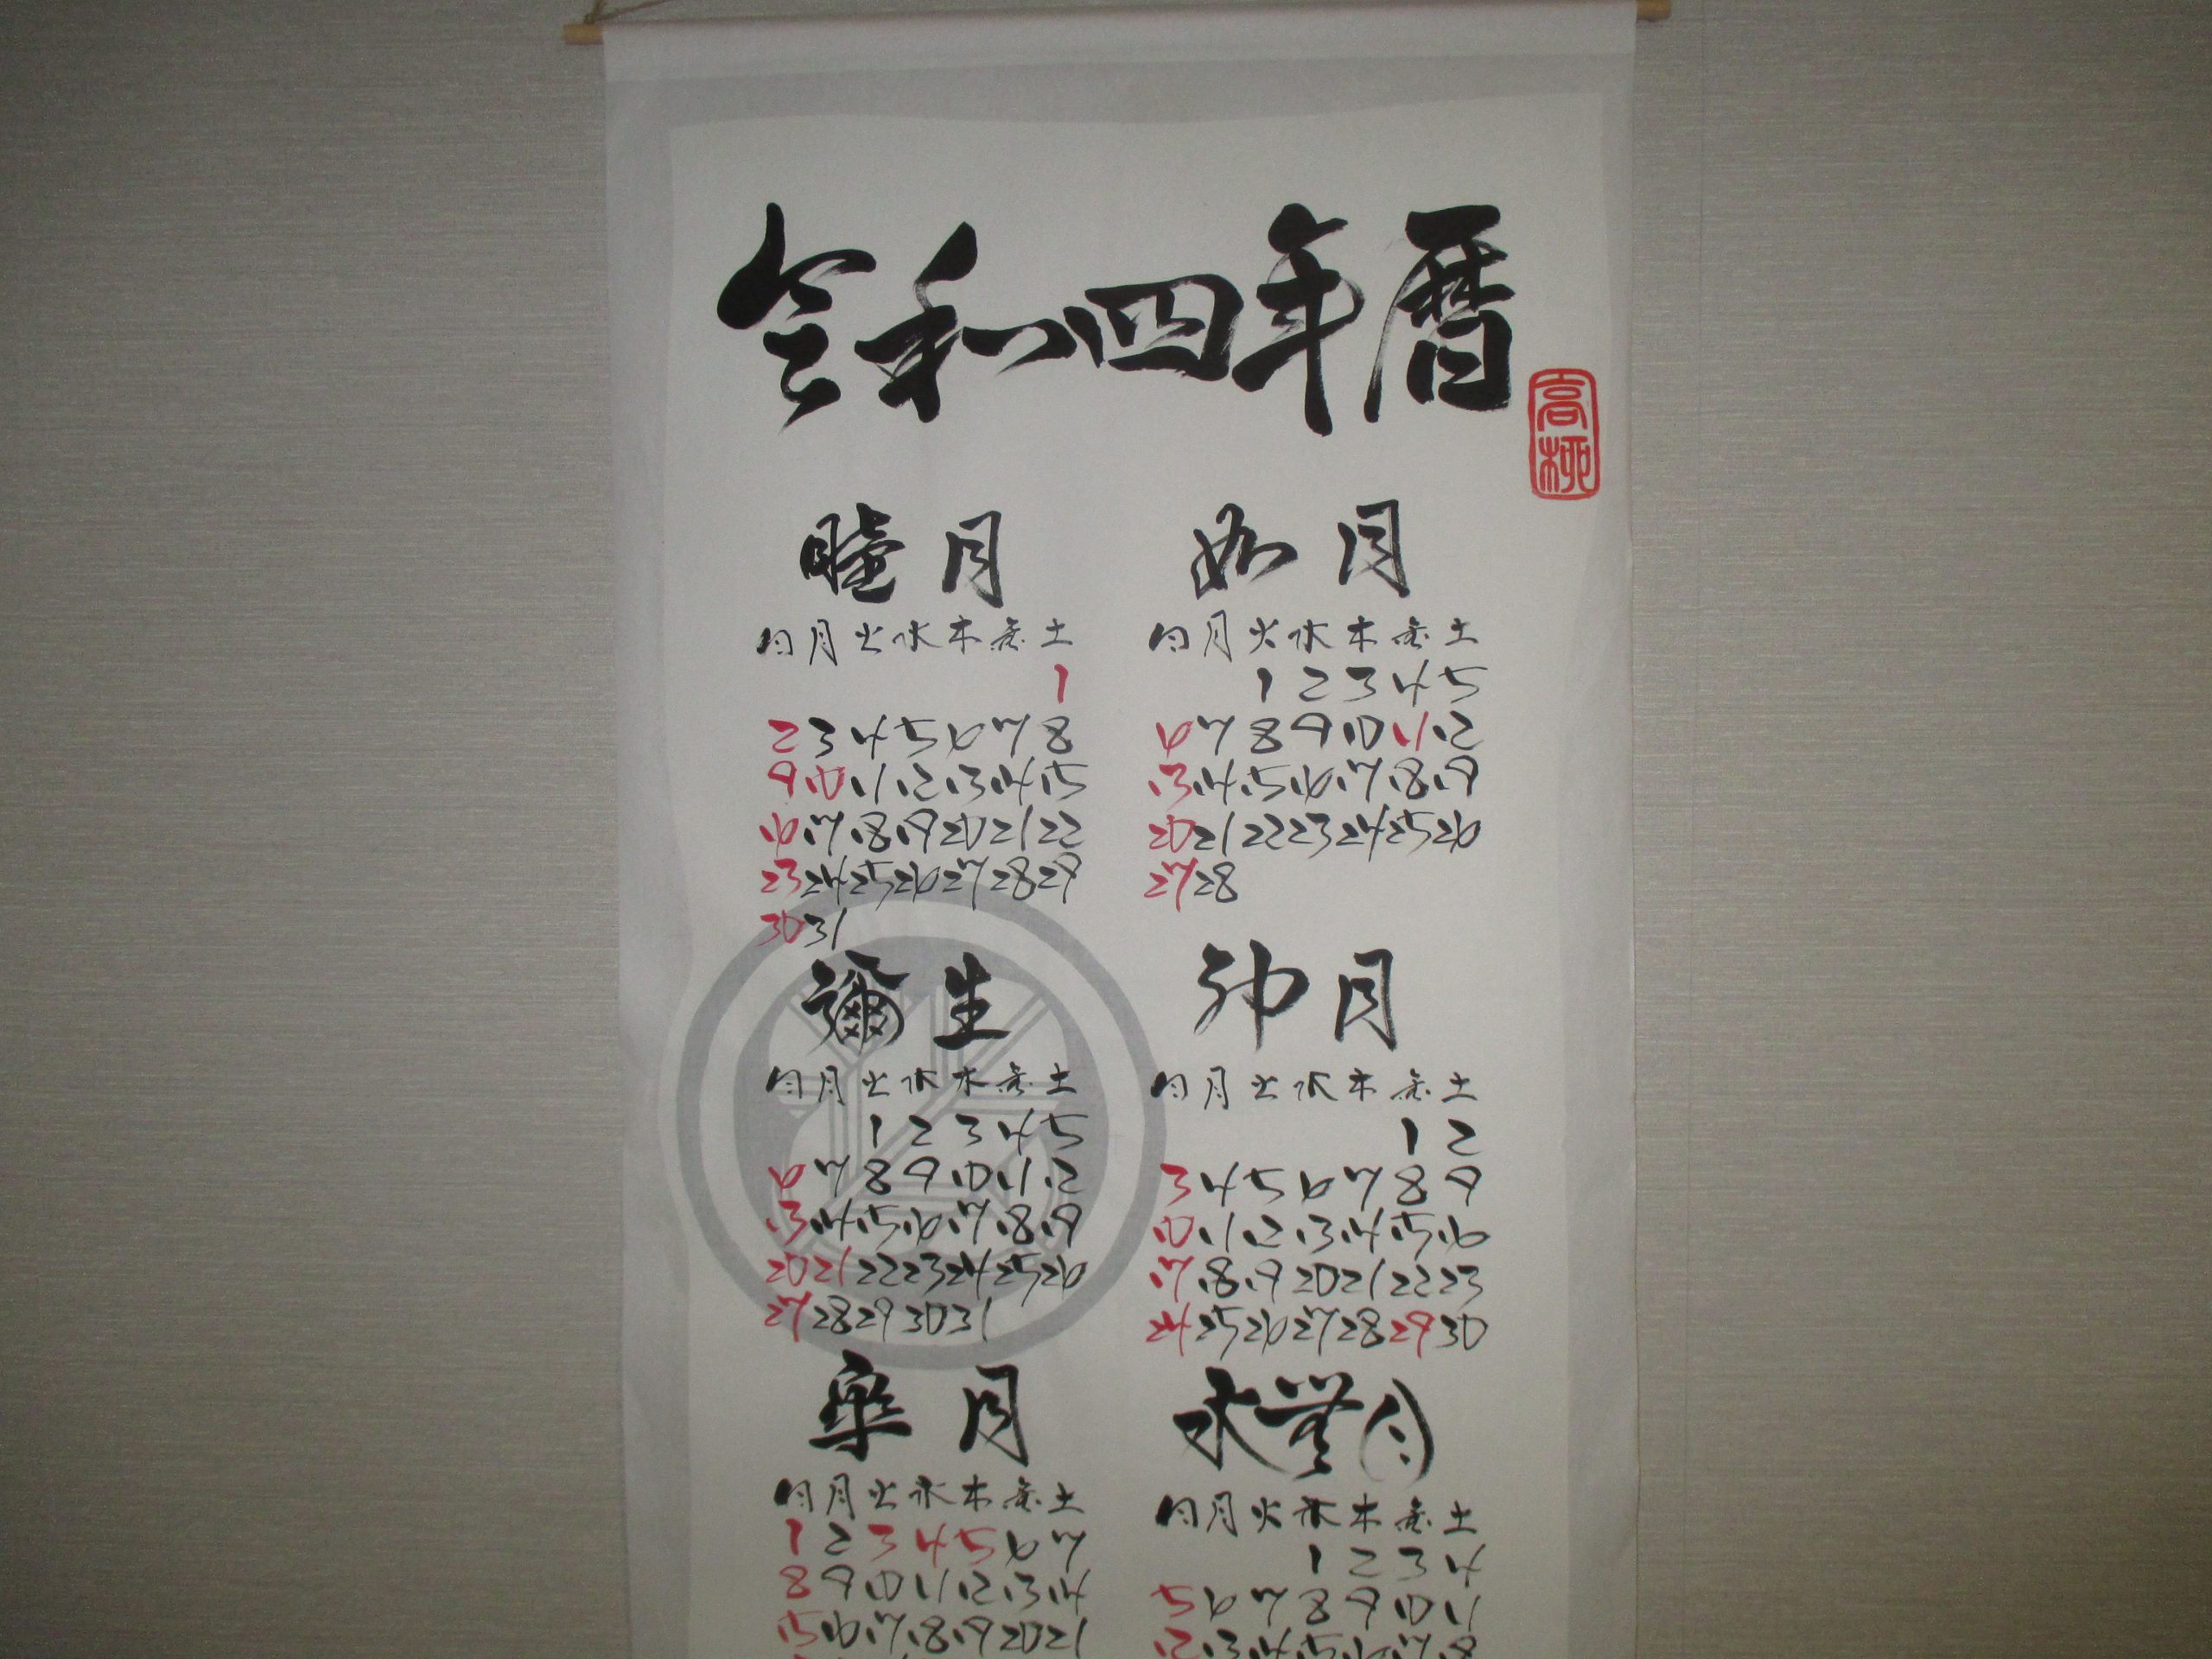 令和四年暦
高柳
睦月
日月火水木金土
1
2 3 4 5 6 7 8
9 10 11 12 13 14 15
16 17 18 19 20 21 22
23 24 25 26 27 28 29
30 31
如月
日月火水木金土
1 2 3 4 5
6 7 8 9 10 11 12
13 14 15 16 17 18 19
20 21 22 23 24 25 26
27 28
彌生
日月火水木金土
1 2 3 4 5
6 7 8 9 10 11 12
13 14 15 16 17 18 19
20 21 22 23 24 25 26
27 28 29 30 31
卯月
日月火水木金土
1 2
3 4 5 6 7 8 9
10 11 12 13 14 15 16
17 18 19 20 21 22 23
24 25 26 27 28 29 30
皐月
日月火水木金土
1 2 3 4 5 6 7
8 9 10 11 12 13 14
15 16 17 18 19 20 21
水無月
日月火水木金土
1 2 3 4
5 6 7 8 9 10 11
12 13 14 15 16 17 18